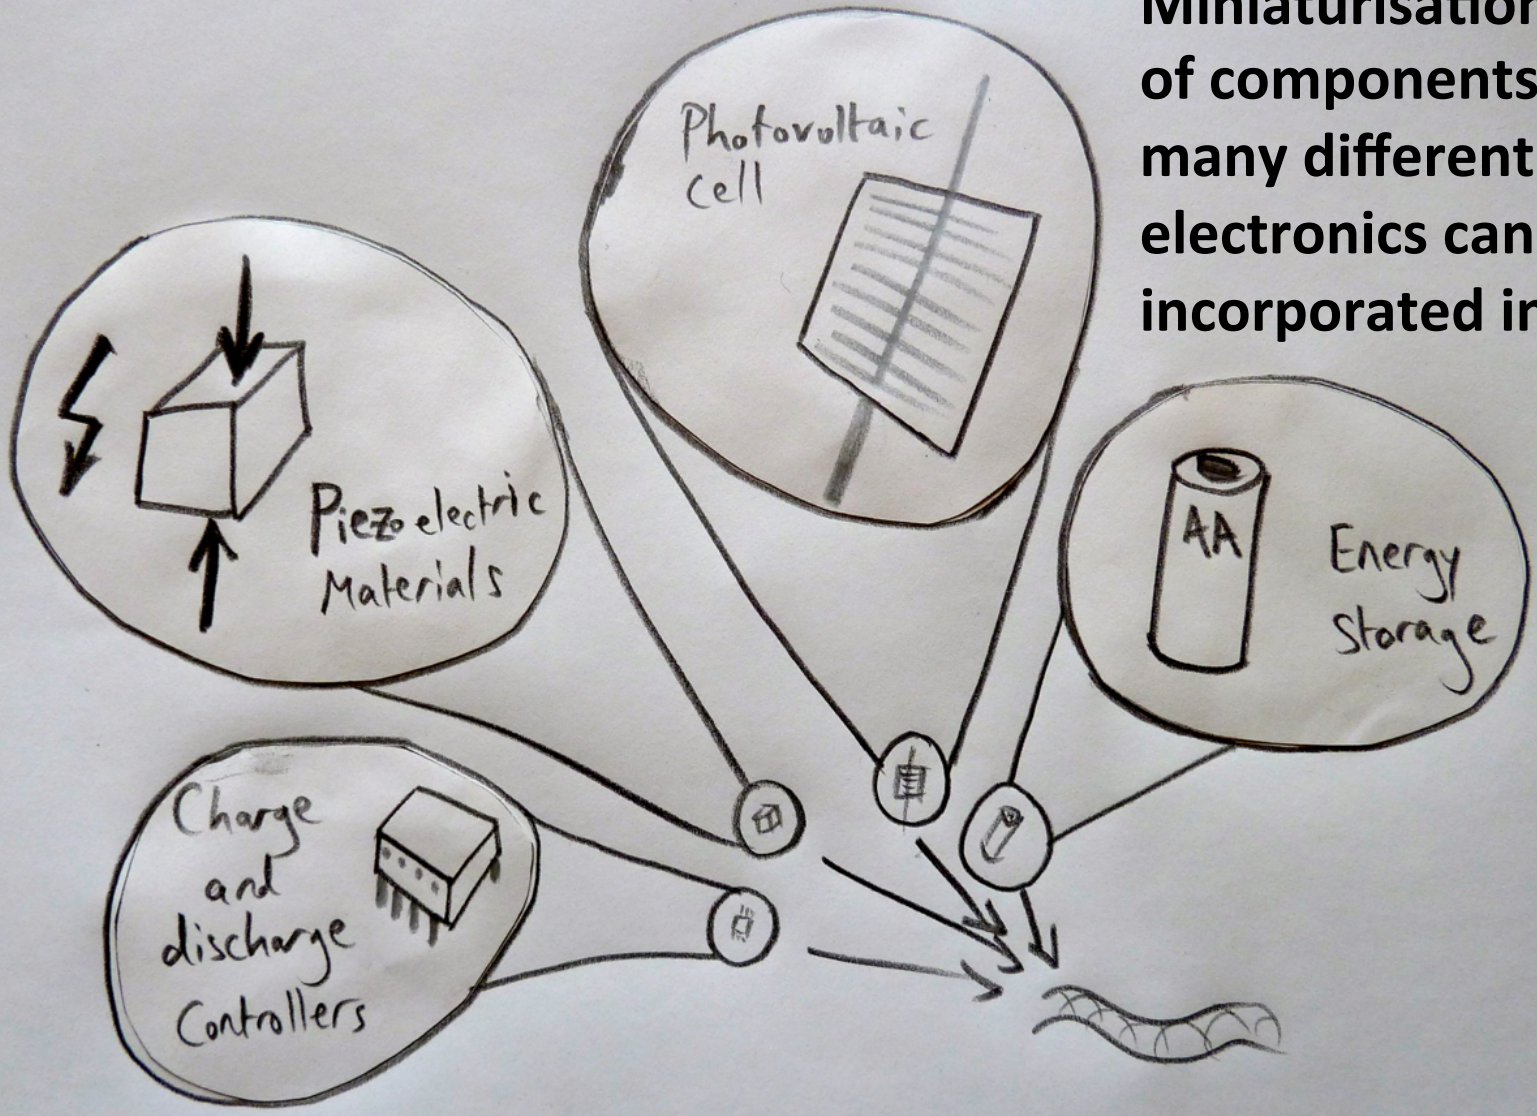 Miniaturisation
of components
many different
electronics can
incorporated in
Photovoltaic
cell
Piezoelectric
Materials
AA
Energy
Storage
Charge
and
discharge
Controllers